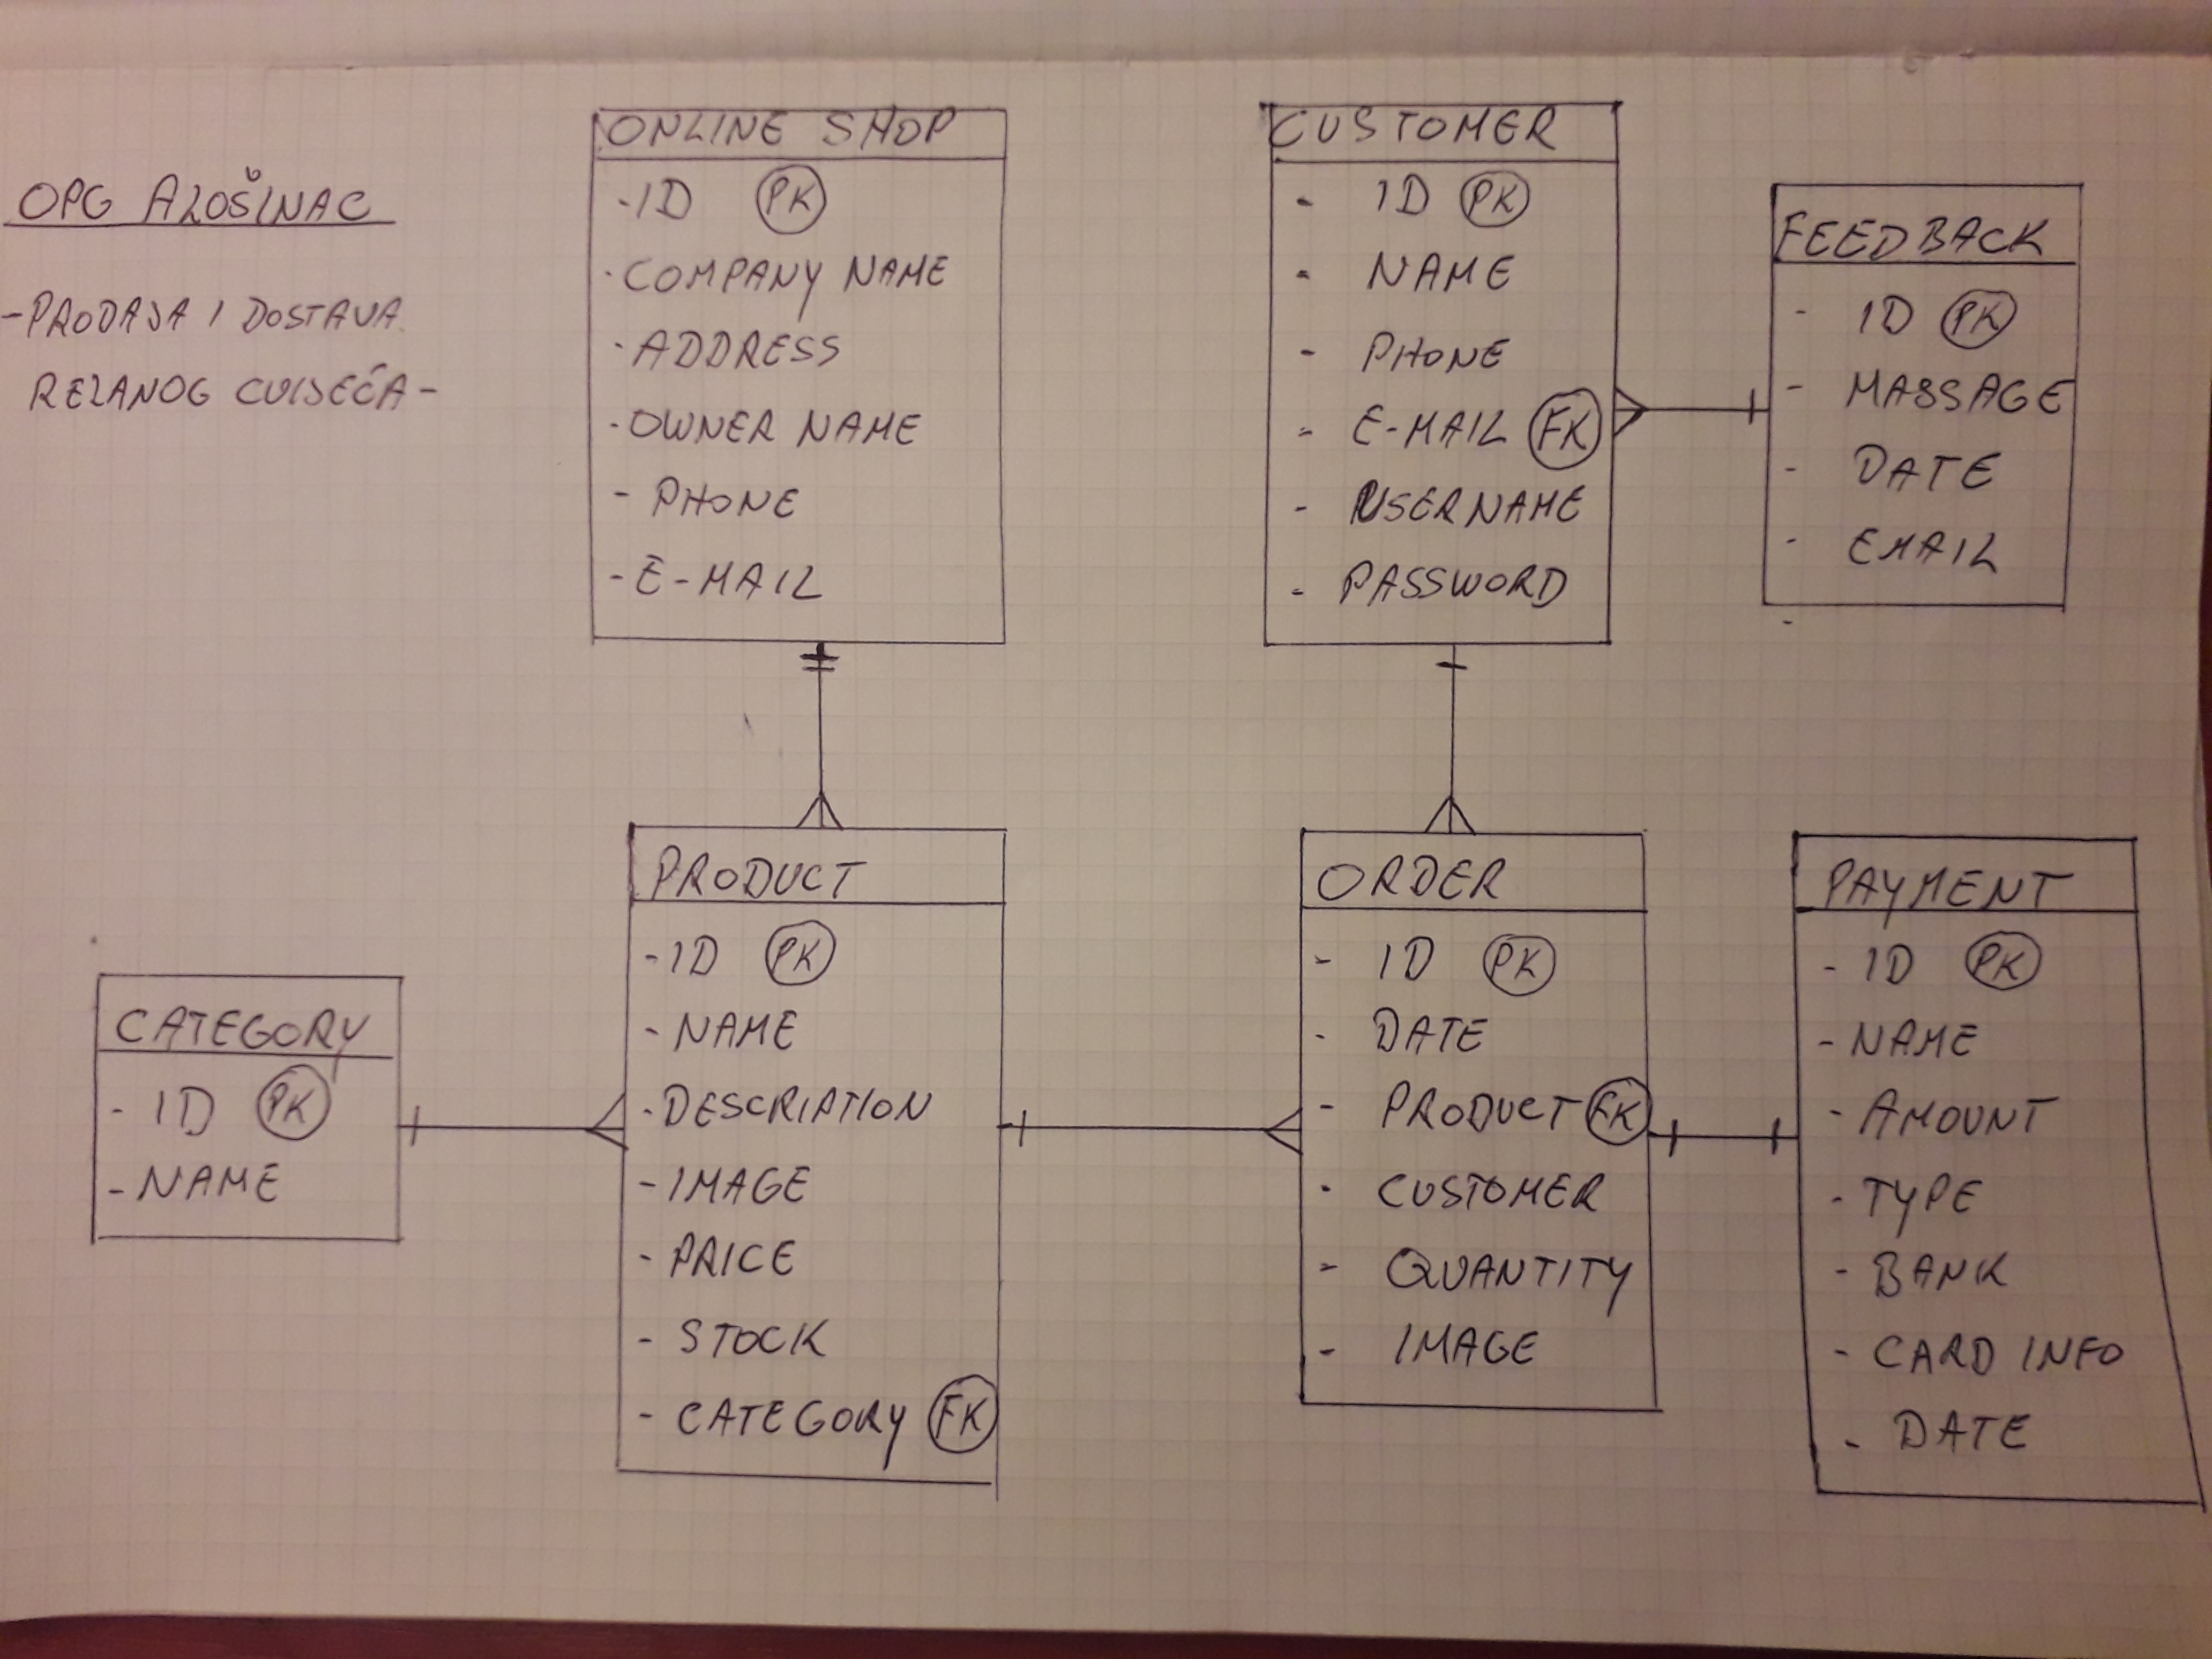 OPG ALOŠINAC
- PRODAJA I DOSTAVA
REZANOG CVIJEĆA -
ONLINE SHOP
- ID PK
- COMPANY NAME
- ADDRESS
- OWNER NAME
- PHONE
- E-MAIL
CUSTOMER
- ID PK
- NAME
- PHONE
- E-MAIL FK
- USERNAME
- PASSWORD
FEEDBACK
- ID PK
- MASSAGE
- DATE
- EMAIL
CATEGORY
- ID PK
- NAME
PRODUCT
- ID PK
- NAME
- DESCRIPTION
- IMAGE
- PRICE
- STOCK
- CATEGORY FK
ORDER
- ID PK
- DATE
- PRODUCT FK
- CUSTOMER
- QUANTITY
- IMAGE
PAYMENT
- ID PK
- NAME
- AMOUNT
- TYPE
- BANK
- CARD INFO
- DATE